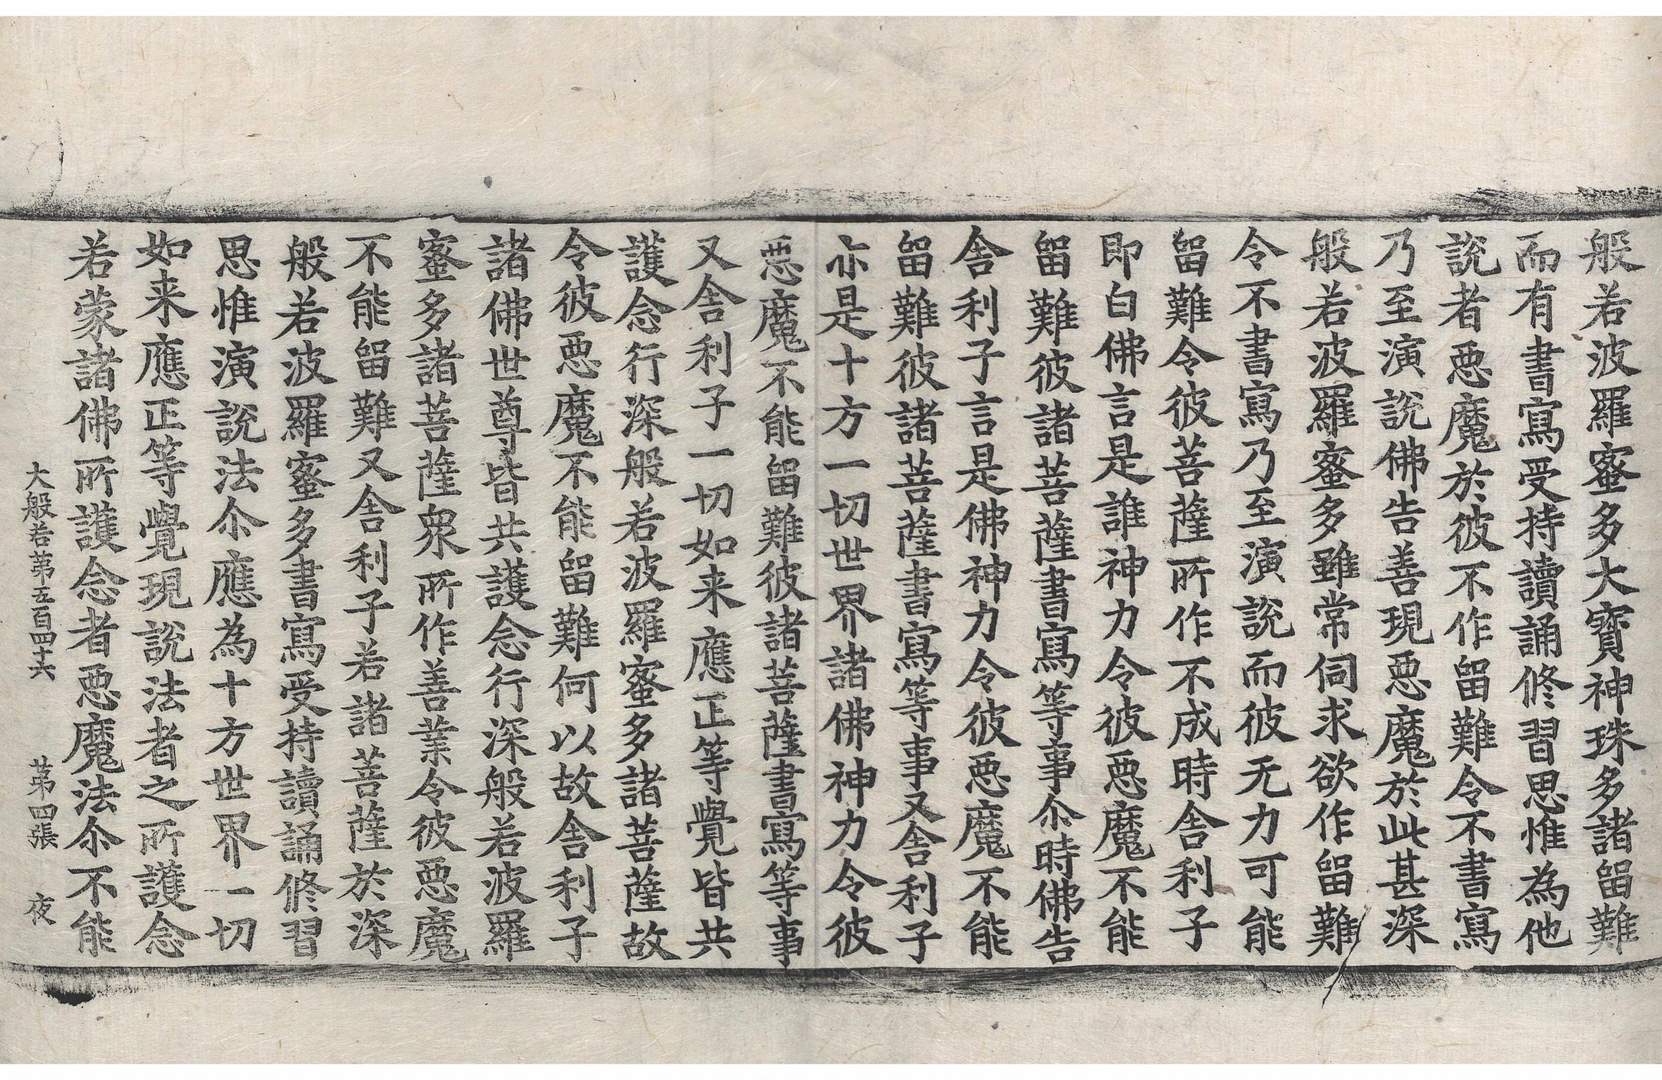 般若波羅蜜多大寶神珠多諸留難
而有書寫受持讀誦修習思惟為他
說者惡魔於彼不作留難令不書寫
乃至演說佛告善現惡魔於此甚深
般若波羅蜜多雖常伺求欲作留難
令不書寫乃至演說而彼无力可能
留難令彼菩薩所作不成時舍利子
即白佛言是誰神力令彼惡魔不能
留難彼諸菩薩書寫等事尒時佛告
舍利子言是佛神力令彼惡魔不能
留難彼諸菩薩書寫等事又舍利子
亦是十方一切世界諸佛神力令彼
惡魔不能留難彼諸菩薩書寫等事
又舍利子一切如来應正等覺皆共
護念行深般若波羅蜜多諸菩薩故
令彼惡魔不能留難何以故舍利子
諸佛世尊皆共護念行深般若波羅
蜜多諸菩薩衆所作善業令彼惡魔
不能留難又舍利子若諸菩薩於深
般若波羅蜜多書寫受持讀誦修習
思惟演說法尒應為十方世界一切
如来應正等覺現說法者之所護念
若蒙諸佛所護念者惡魔法尒不能
大般若第五百四十六 第四張 夜